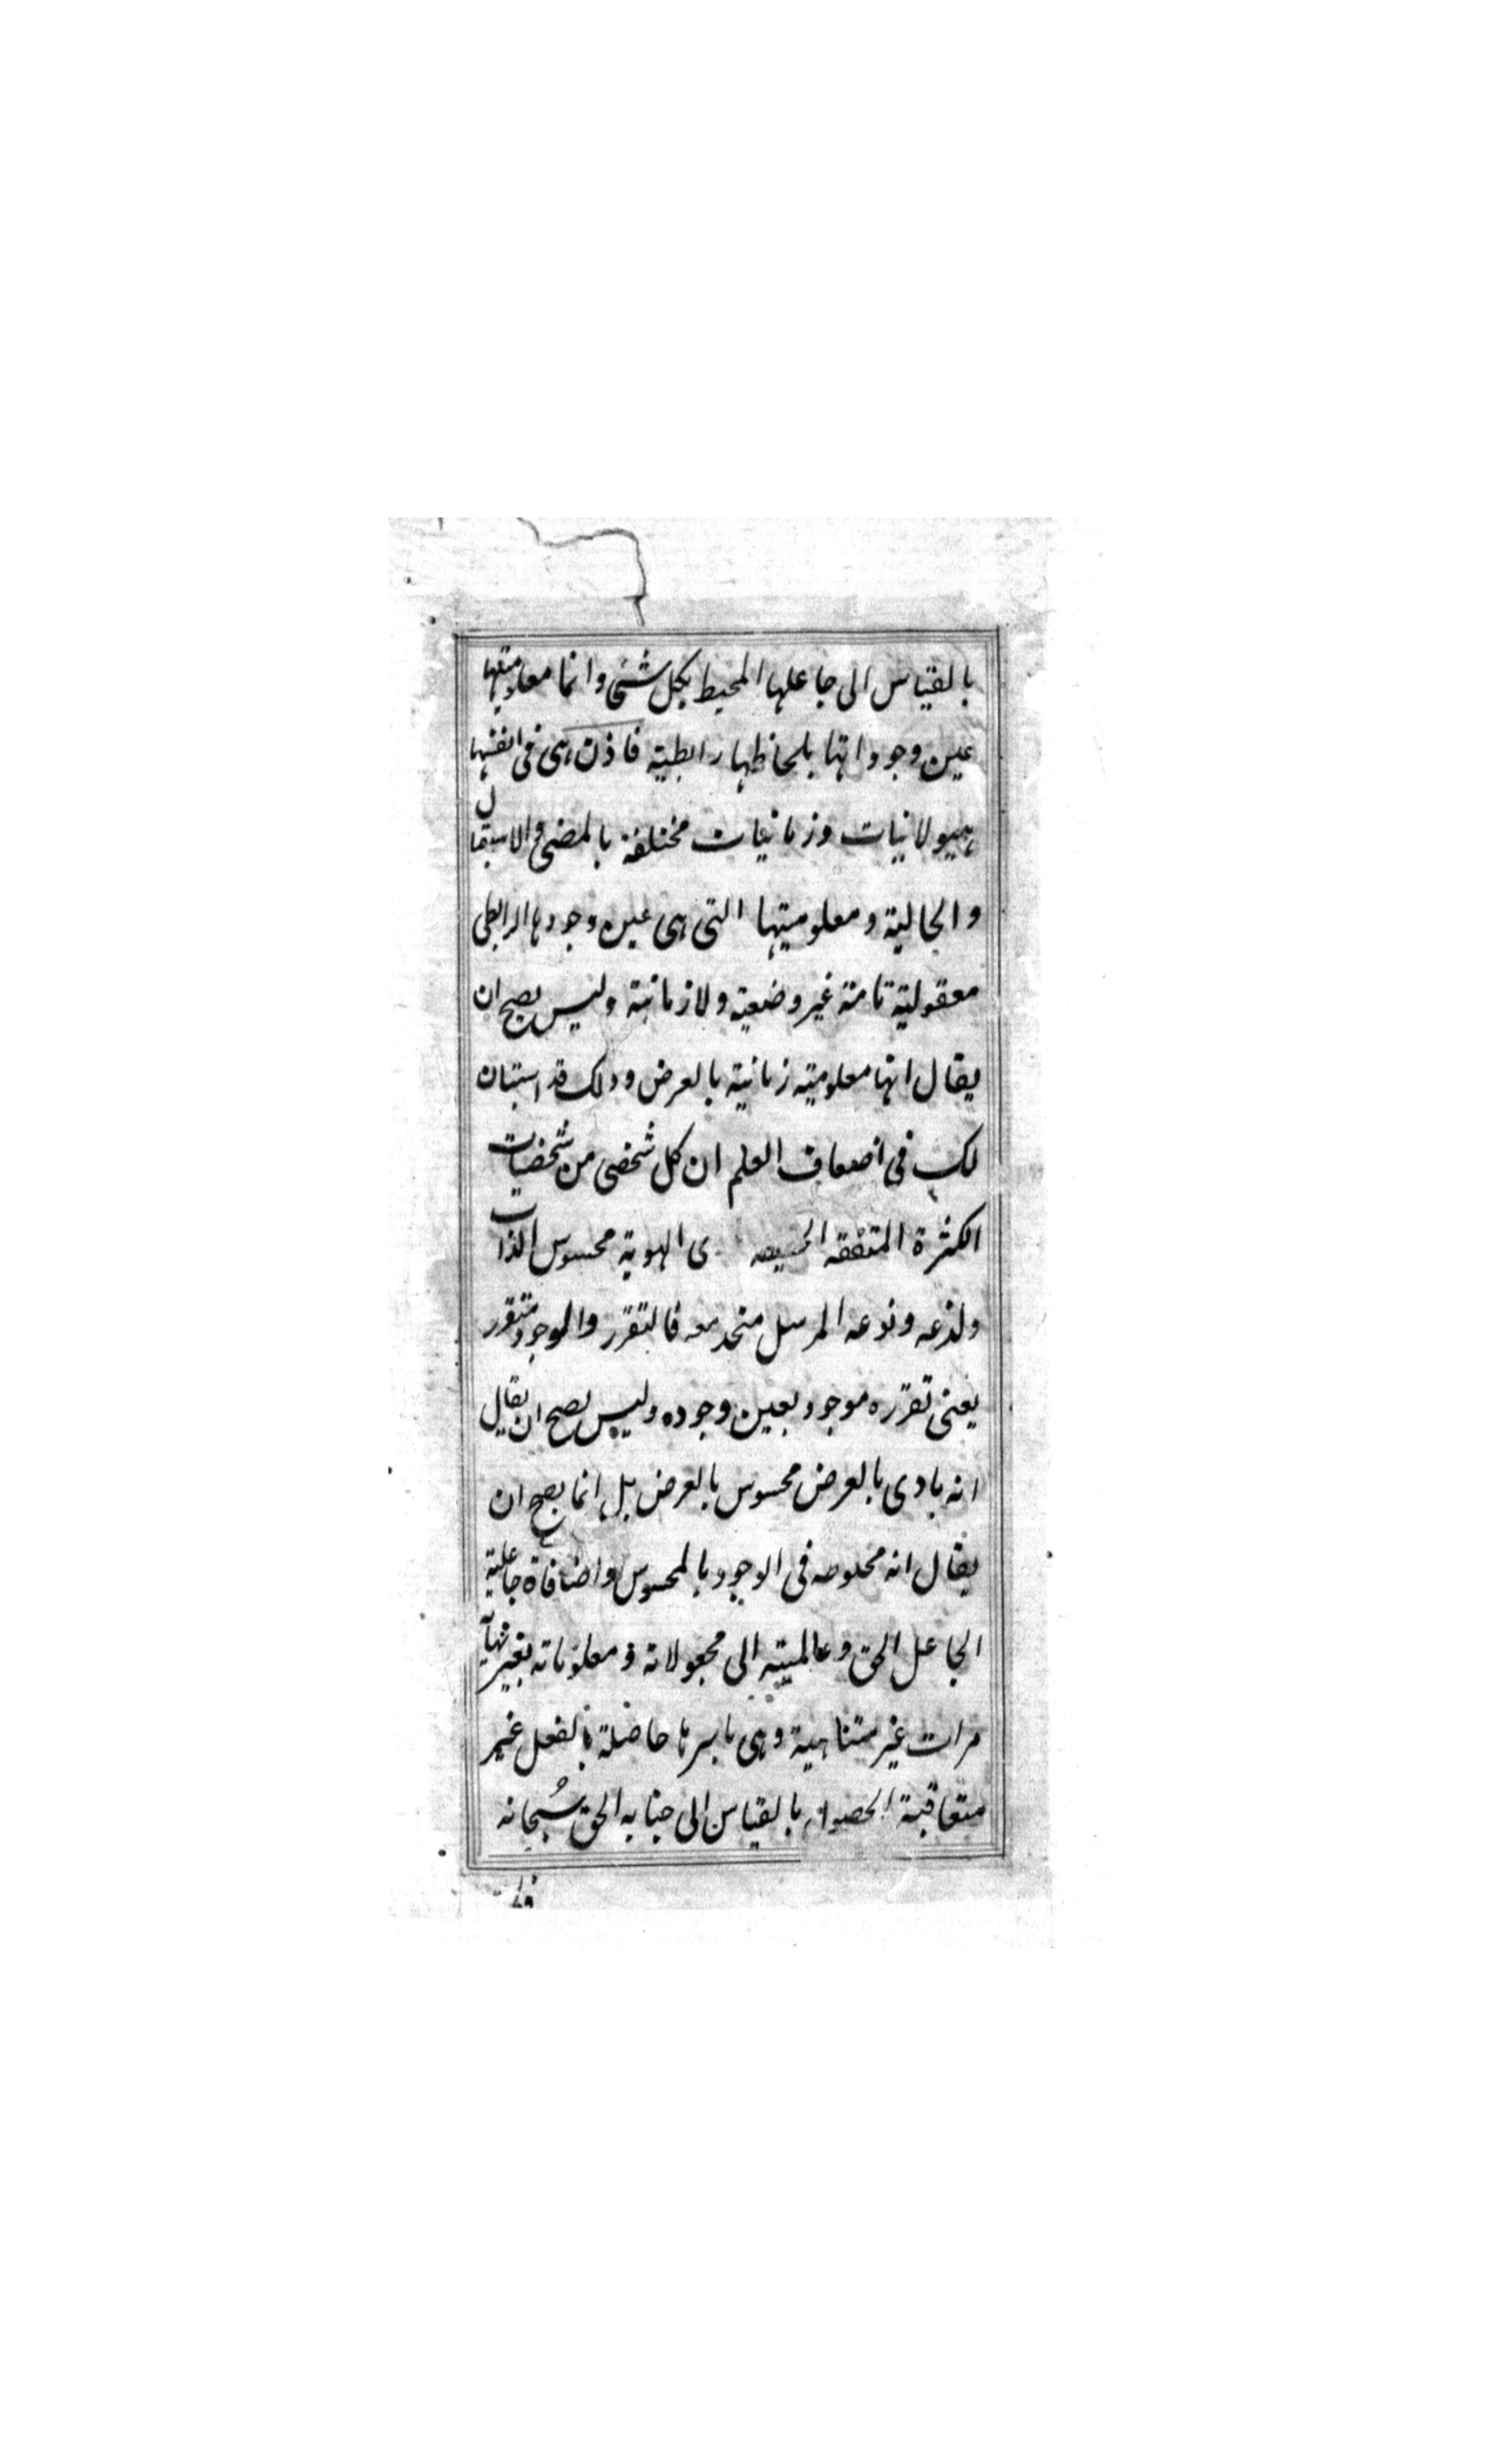 بالقياس الى جاعلها المحيط بكل شئ وانما معلوميتها
عين وجوداتها بلحاظها رابطية فاذن هى فى انفسها
هيولانيات وزمانيات مختلفة بالمضى والاستقبال
والحالية ومعلوميتها التى هى عين وجودها الرابطى
معقولية تامة غير وضعية ولا زمانية وليس يصح ان
يقال انها معلومية زمانية بالعرض وذلك قد استبان
لك فى اضعاف العلم ان كل شخصى من شخصيات
الكثرة المتفقه الهوية محسوس الذات
ونوعه المرسل متحد معه فالتقرر والوجود متقرر
يعنى تقرره موجود بعين وجوده وليس يصح ان يقال
انه بادى بالعرض محسوس بالعرض بل انما يصح ان
يقال انه مخلوصه فى الوجود بالمحسوس واضافة جاعلية
الجاعل الحق وعالميته الى مجعولاته ومعلوماته بغير نهاية
مرات غير متناهية وهى باسرها حاصلة بالفعل غير
متعاقبة الحصول بالقياس الى جنابه الحق سُبحانه